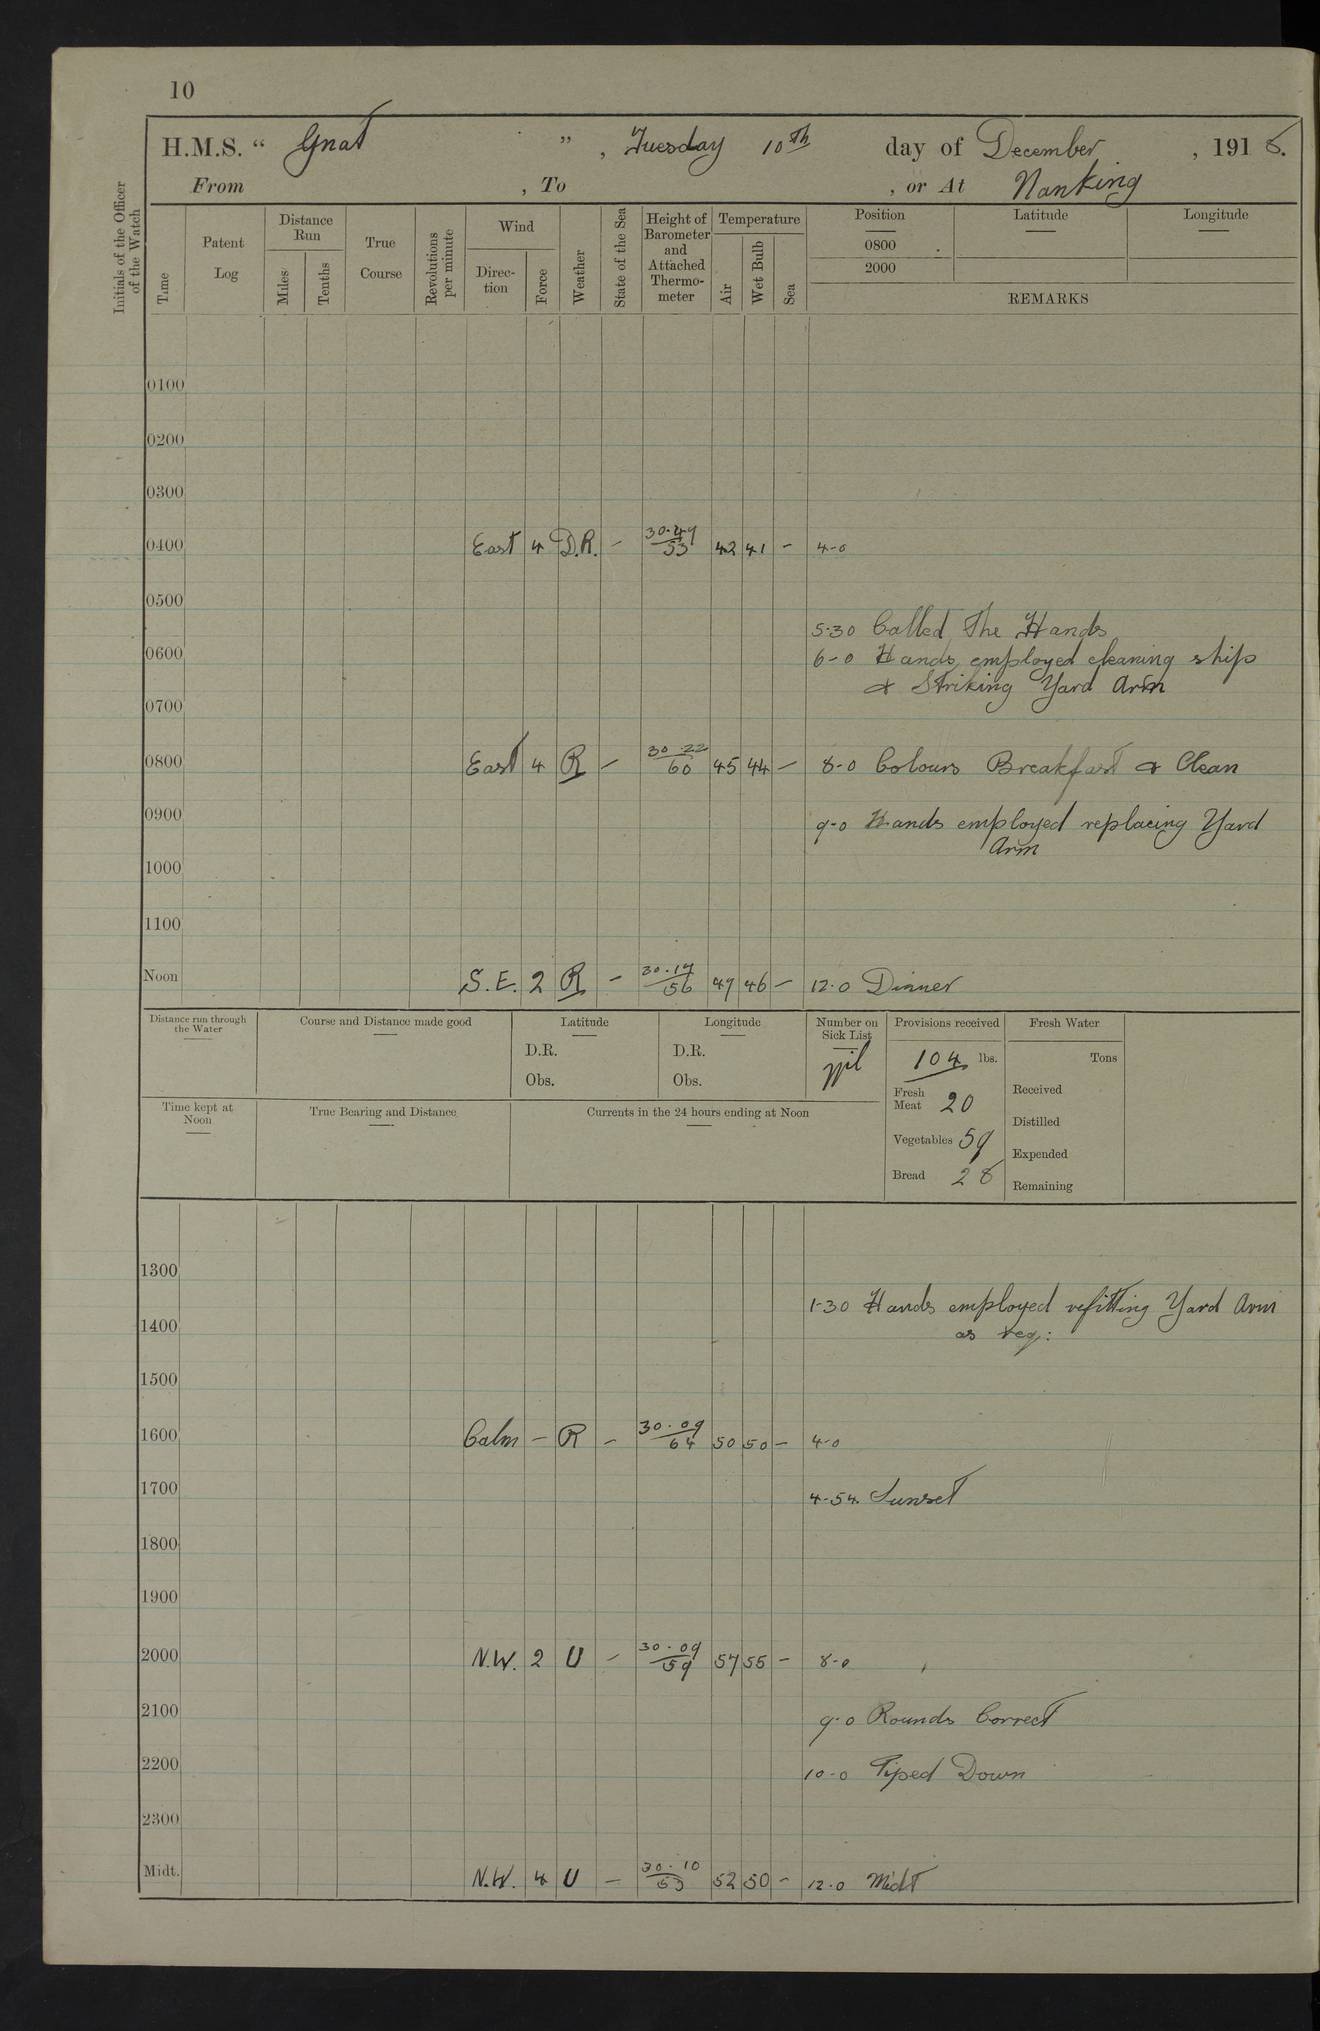 10
H.M.S. “ Gnat ” , Tuesday 10th day of December , 1918.
From , To , or At Nanking
Initials of the Officer of the Watch
Time
Patent Log
Distance Run
Miles
Tenths
True Course
Revolutions per minute
Wind
Direc-tion
Force
Weather
State of the Sea
Height of Barometer and Attached Thermo-meter
Temperature
Air
Wet Bulb
Sea
Position Latitude Longitude
0800
2000
REMARKS
0100
0200
0300
0400 East 4 D.R. - 53 42 41 - 4-0
0500
5-30 Called The Hands
0600 6-0 Hands employed cleaning ship
& Striking Yard Arm
0700
0800 East 4 R - 30.22 60 45 44 - 8-0 Colours Breakfast & Clean
0900 9-0 Hands employed replacing Yard
Arm
1000
1100
Noon S.E. 2 R - 30.17 56 47 46 - 12.0 Dinner
Distance run through the Water
Course and Distance made good
Latitude
D.R.
Obs.
Longitude
D.R.
Obs.
Number on Sick List
Nil
Provisions received
104 lbs.
Fresh Meat 20
Vegetables 59
Bread 28
Fresh Water
Tons
Received
Distilled
Expended
Remaining
Time kept at Noon
True Bearing and Distance
Currents in the 24 hours ending at Noon
1300
1-30 Hands employed refitting Yard Arm
1400 as req:
1500
1600 Calm - R - 30.09 64 50 50 - 4-0
1700 4-54 Sunset
1800
1900
2000 N.W. 2 U - 30.09 59 57 55 - 8-0
2100 9.0 Rounds Correct
2200 10-0 Piped Down
2300
Midt. N.W. 4 U - 30.10 53 52 50 - 12.0 Midt